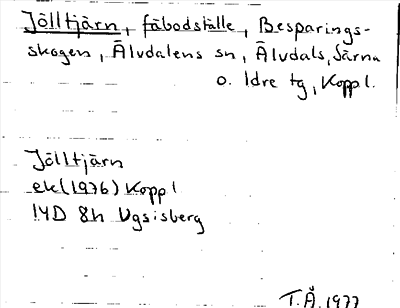 Jölltjärn, fäbodställe, Besparings-
skogen, Älvdalens sn, Älvdals, Särna
o. Idre tg, Koppl.
Jölltjärn
ek (1976) Koppl
14D 8h Ugsisberg
T.Å. 1977